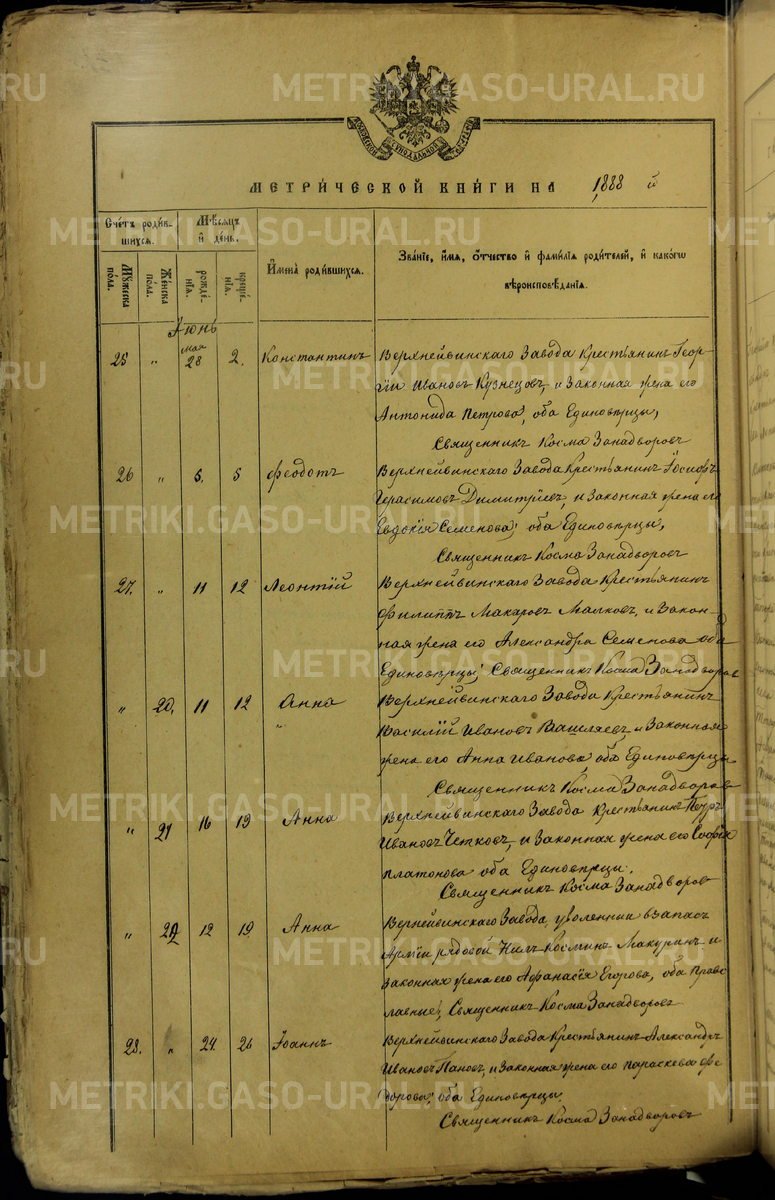 МЕТРИ́ЧЕСКОЙ КНИ́ГИ НА 1888 й
Сче́тъ роди́в-
шихся.
Мѣ́сяцъ
и҆ де́нь.
И҆мена̀ роди́вшихся.
Зва́ніе, и҆́мя, ѻ҆́тчество и҆ фами́лія роди́телей, и҆ како́гѡ
вѣроисповѣ́данія.
Му́жеска
по́ла.
Же́нска
по́ла.
рожде́-
нія.
креще́-
нія.
Іюнь
25 " мая 28 2. Константинъ Верхнейвинскаго Завода Крестьянинъ Геор-
гій Ивановъ Кузнецовъ, и Законная жена его
Антонида Петрова, оба Единовѣрцы,
Священникъ Косма Занадворовъ
26 " 5. 5 Феодотъ Верхнейвинскаго Завода Крестьянинъ Іосифъ
Герасимовъ Димитріевъ, и Законная жена его
Евдокія Семенова, оба Единовѣрцы,
Священникъ Косма Занадворовъ
27. " 11 12 Леонтій Верхнейвинскаго Завода Крестьянинъ
Филиппъ Макаровъ Малковъ, и Закон-
ная жена его Александра Семенова оба
Единовѣрцы, Священникъ Косма Занадворовъ
" 20. 11 12 Анна Верхнейвинскаго Завода Крестьянинъ
Василій Ивановъ Вашляевъ, и Законная
жена его Анна Иванова, оба Единовѣрцы
Священникъ Косма Занадворовъ
" 21 16 19 Анна Верхнейвинскаго Завода Крестьянинъ Петръ
Ивановъ Четковъ, и Законная жена его Софія
Платонова оба Единовѣрцы.
Священникъ Косма Занадворовъ
" 22 12 19 Анна Вернейвинскаго Завода, уволенный въ запасъ
Арміи рядовой Нилъ Косминъ Макуринъ и
Законная жена его Афанасія Егорова, оба Право-
славные, Священникъ Косма Занадворовъ
28. " 24. 26 Іоаннъ Верхнейвинскаго Завода Крестьянинъ Александръ
Ивановъ Пановъ, и Законная жена его Параскева Фе-
дорова, оба Единовѣрцы.
Священникъ Косма Занадворовъ
METRIKI.GASO-URAL.RU